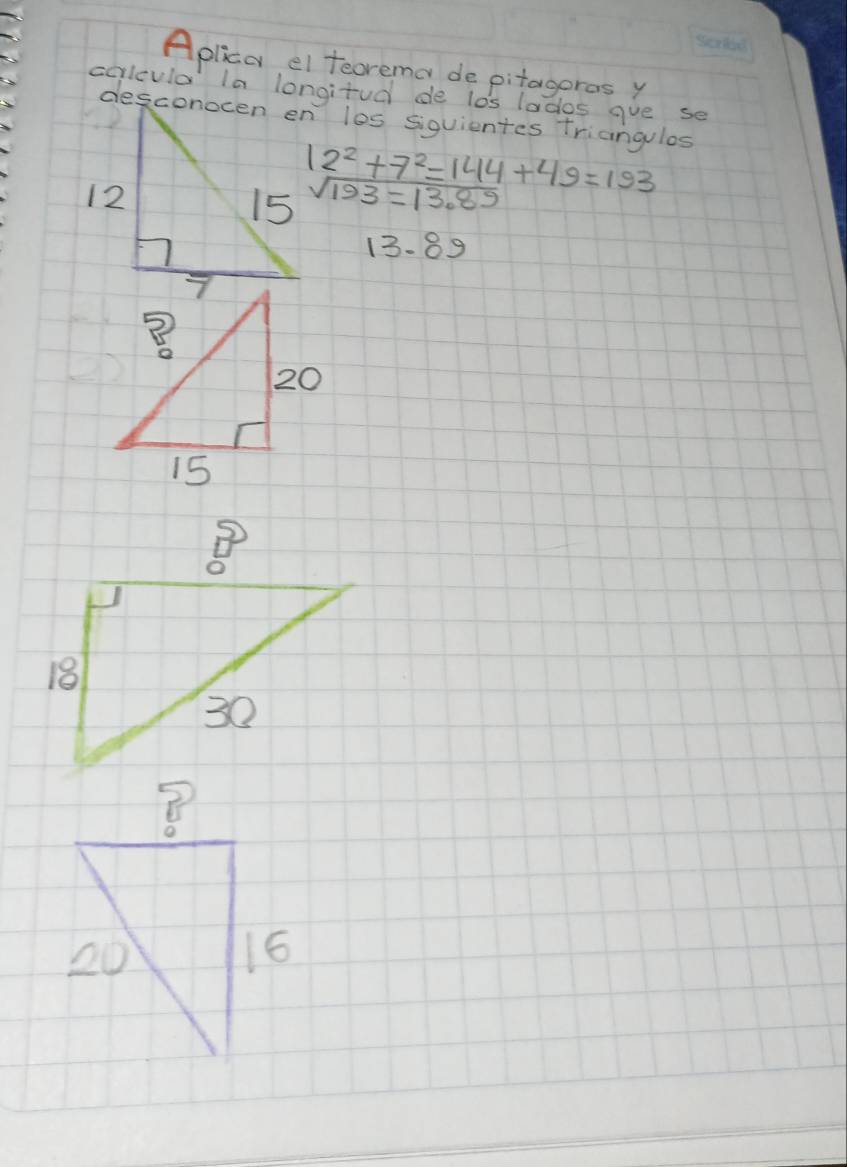 Scribe
Aplica el teorema de pitagoras y
calcula la longitud de los lados que se
desconocen en los siguientes triangulos
12² + 7² = 144 + 49 = 193
√193 = 13.89
12
15
13.89
7
?
20
15
?
18
30
?
20
16